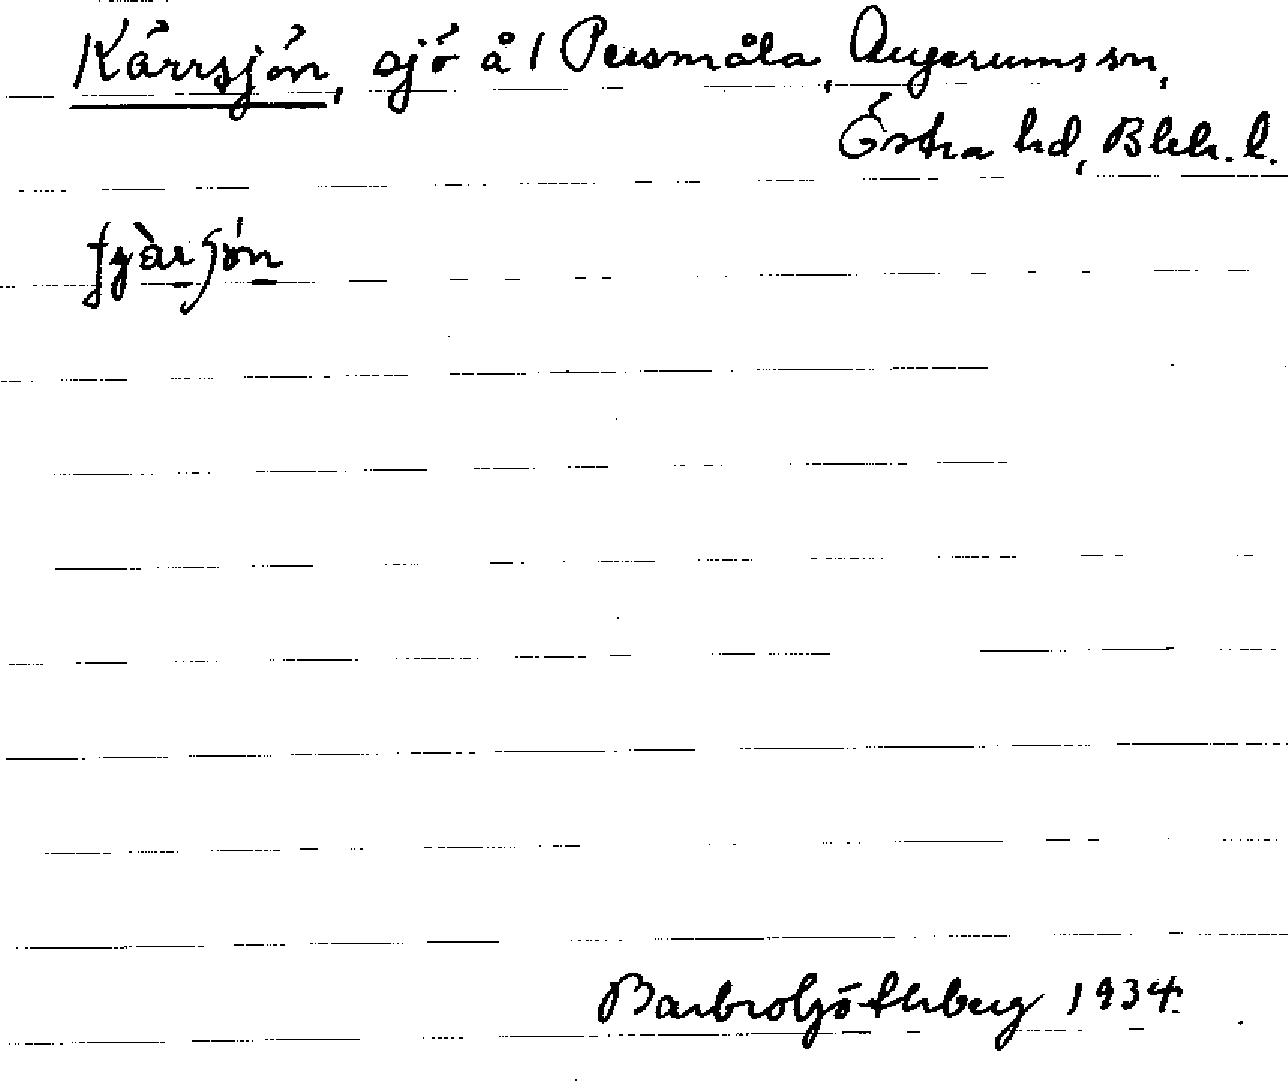 Kärrsjön, sjö å 1 Persmåla, Augerums sn,
Östra hd, Blek. l.
Barbro Götherberg 1934.